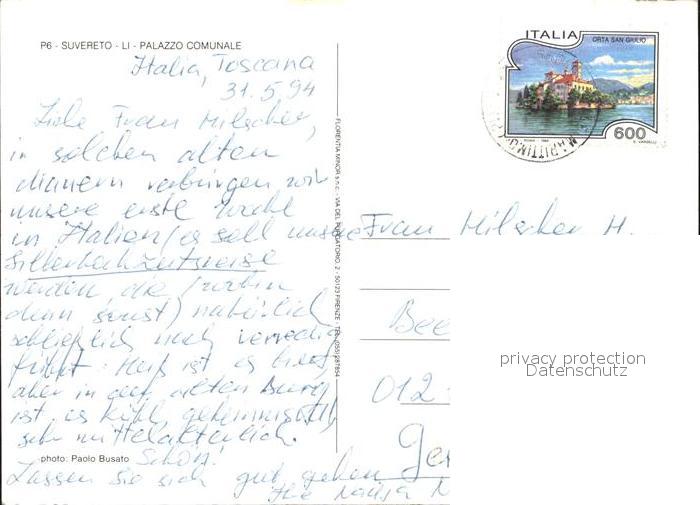 P6 - SUVERETO - LI - PALAZZO COMUNALE
Italia, Toscana
31.5.94
Liebe Frau Hilscher,
in solchen alten
verbringen wir
unsere erste Woche
in Italien (es soll unsere
Silberhochzeitsreise
werden, die (wohin
denn sonst) natürlich
schließlich nach
führt. Heiß ist es hier,
aber in der alten Burg
ist es kühl, geheimnisvoll,
sehr mittelalterlich.
Schön!
photo: Paolo Busato
Lassen Sie sich gut gehen
Ihre
FLORENTIA MINOR s.n.c. - VIA DEL 2 - 50123 FIRENZE TEL. 055/287854
ITALIA
ORTA SAN GIULIO
600
ROMA
E. VANGELLI
MARITTIMO
Frau Hilscher H.
Bee
012
Ger
privacy protection
Datenschutz